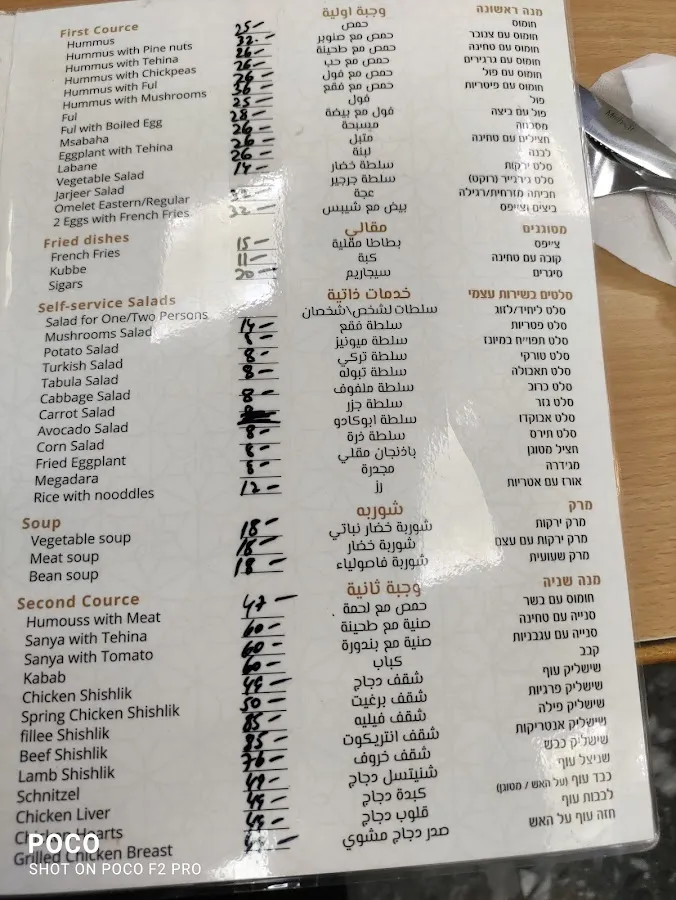 First Cource
Hummus
Hummus with Pine nuts
Hummus with Tehina
Hummus with Chickpeas
Hummus with Ful
Hummus with Mushrooms
Ful
Ful with Boiled Egg
Msabaha
Eggplant with Tehina
Labane
Vegetable Salad
Jarjeer Salad
Omelet Eastern/Regular
2 Eggs with French Fries
Fried dishes
French Fries
Kubbe
Sigars
Self-service Salads
Salad for One/Two Persons
Mushrooms Salad
Potato Salad
Turkish Salad
Tabula Salad
Cabbage Salad
Carrot Salad
Avocado Salad
Corn Salad
Fried Eggplant
Megadara
Rice with nooddles
Soup
Vegetable soup
Meat soup
Bean soup
Second Cource
Humouss with Meat
Sanya with Tehina
Sanya with Tomato
Kabab
Chicken Shishlik
Spring Chicken Shishlik
fillee Shishlik
Beef Shishlik
Lamb Shishlik
Schnitzel
Chicken Liver
Chicken Hearts
Grilled Chicken Breast
25-
32.-
26-
26-
26-
36-
25-
28-
26-
26-
26-
14-
32-
15-
11-
20-
14-
8-
8-
8-
8-
8-
8-
12-
18-
18-
18-
47-
60-
60-
60-
49-
50-
85-
85-
76-
49-
49-
49-
وجبة اولية
حمص
حمص مع صنوبر
حمص مع طحينة
حمص مع حب
حمص مع فول
حمص مع فقع
فول
فول مع بيضة
مسبحة
متبل
لبنة
سلطة خضار
سلطة جرجير
عجة
بيض مع شيبس
مقالي
بطاطا مقلية
كبة
سيجاريم
خدمات ذاتية
سلطات لشخص\شخصان
سلطة فقع
سلطة ميونيز
سلطة تركي
سلطة تبوله
سلطة ملفوف
سلطة جزر
سلطة ابوكادو
سلطة خرة
باذنجان مقلي
مجدرة
رز
شوربه
شوربة خضار نباتي
شوربة خضار
شوربة فاصولياء
وجبة ثانية
حمص مع لحمة
صنية مع طحينة
صنية مع بندورة
كباب
شقف دجاج
شقف برغيت
شقف فيليه
شقف انتريكوت
شقف خروف
شنيتسل دجاج
كبدة دجاج
قلوب دجاج
صدر دجاج مشوي
מנה ראשונה
חומוס
חומוס עם צנובר
חומוס עם טחינה
חומוס עם גרגירים
חומוס עם פול
חומוס עם פיטריות
פול
פול עם ביצה
מסבחה
חצילים עם טחינה
לבנה
סלט ירקות
סלט ג'רג'יר (רוקט)
חביתה מזרחית/רגילה
ביצים וצ'יפס
מטוגנים
צ'יפס
קובה עם טחינה
סיגרים
סלטים בשירות עצמי
סלט ליחיד/לזוג
סלט פטריות
סלט תפוייח במיונז
סלט טורקי
סלט תאבולה
סלט כרוב
סלט גזר
סלט אבוקדו
סלט תירס
חציל מטוגן
מג'דרה
אורז עם אטריות
מרק
מרק ירקות
מרק ירקות עם עצם
מרק שעועית
מנה שניה
חומוס עם בשר
סנייה עם טחינה
סנייה עם עגבניות
קבב
שישליק עוף
שישליק פרגיות
שישליק פילה
שישליק אנטריקוט
שישליק כבש
שניצל עוף
כבד עוף (על האש / מטוגן)
לבבות עוף
חזה עוף על האש
POCO
SHOT ON POCO F2 PRO